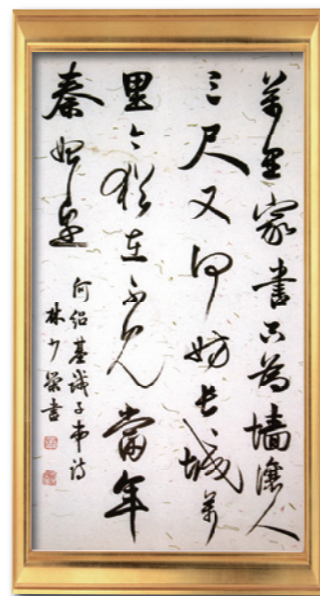 萬里家書只為墻讓人
三尺又何妨長城萬
里今猶在不見當年
秦始皇
何紹基誡子弟詩
林少榮書